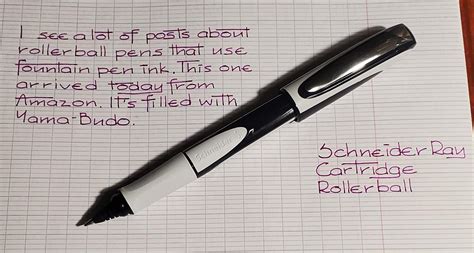 I see a lot of posts about
rollerball pens that use
fountain pen ink. This one
arrived today from
Amazon. It's filled with
Yama-Budo.
Schneider
Schneider Ray
Cartridge
Rollerball